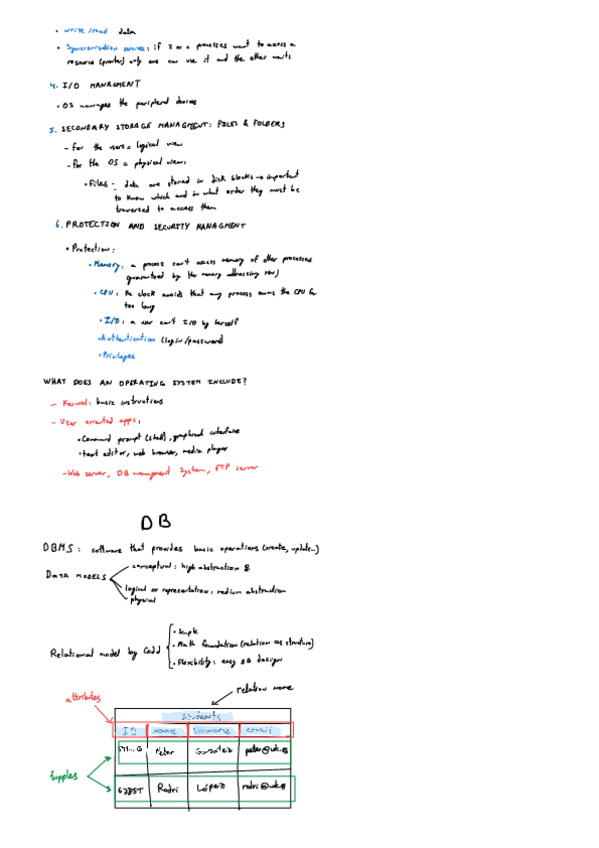 • write/read data
• Syncronization services: if 2 or + processes want to access a
resource (printer) only one can use it and the other waits
4. I/O MANAGMENT
• OS manages the peripheral devices
5. SECONDARY STORAGE MANAGMENT: FILES & FOLDERS
- For the users = logical view
- For the OS = physical view:
• Files: data are stored in disk blocks → important
to know which and in what order they must be
traversed to access them
6. PROTECTION AND SECURITY MANAGMENT
• Protection:
• Memory: a process can't access memory of other processes
(guaranteed by the memory addressing)
• CPU: the clock avoids that any process owns the CPU for
too long
• I/O: a user can't I/O by herself
• Authentication (login/password)
• Privileges
WHAT DOES AN OPERATING SYSTEM INCLUDE?
- Kernel: basic instructions
- User oriented apps:
• Command prompt (shell), graphical interface
• text editor, web browser, media player
- Web server, DB managment system, FTP server
DB
DBMS: software that provides basic operations (create, update..)
DATA MODELS
conceptual: high abstraction
logical or representation: medium abstraction
physical
Relational model by Codd
• Simple
• Math foundation (relation as structure)
• Flexibility: easy DB design
relation name
attributes
students
ID name surname email
Peter González peter@uk.es
tupples
6385T Rodri López rodri@uk.es